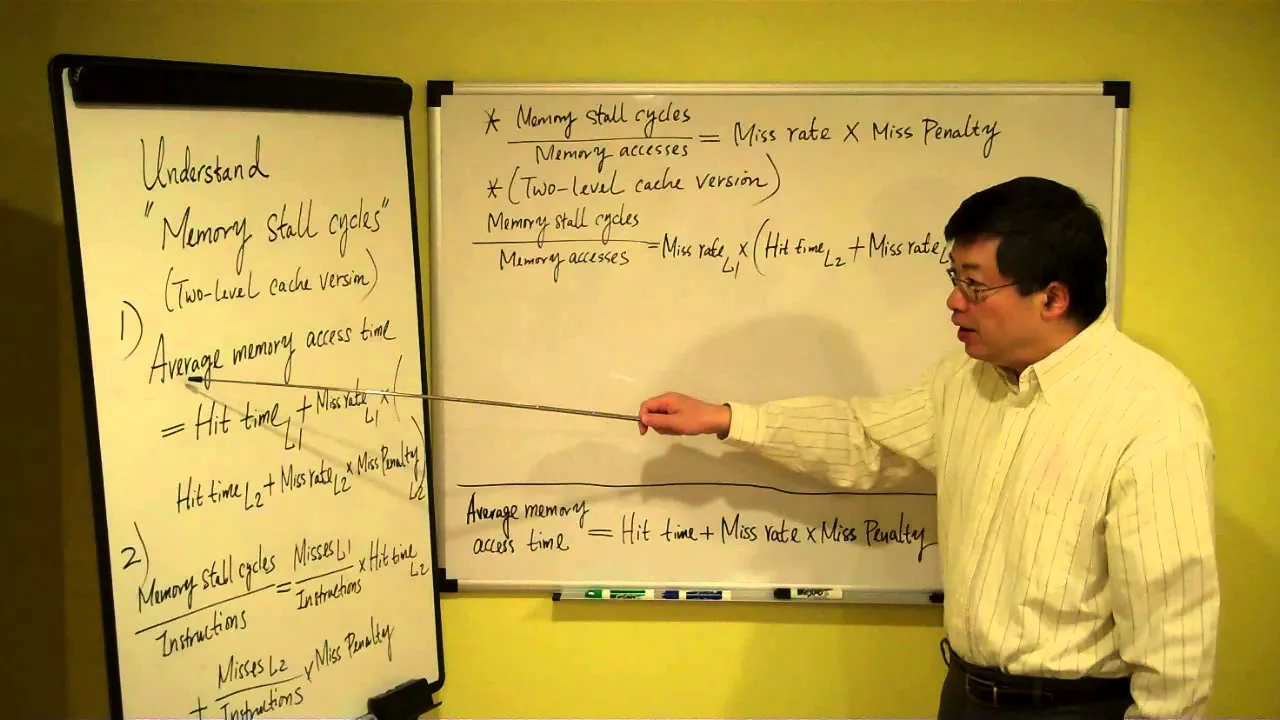 Understand
"Memory stall cycles"
(Two-level cache version)
1) Average memory access time
= Hit time L1 + Miss rate L1 × (
Hit time L2 + Miss rate L2 × Miss Penalty L2 )
2) Memory stall cycles / Instructions = Misses L1 / Instructions × Hit time L2
+ Misses L2 / Instructions × Miss Penalty
* Memory stall cycles / Memory accesses = Miss rate × Miss Penalty
* (Two-level cache version)
Memory stall cycles / Memory accesses = Miss rate L1 × ( Hit time L2 + Miss rate
Average memory
access time = Hit time + Miss rate × Miss Penalty